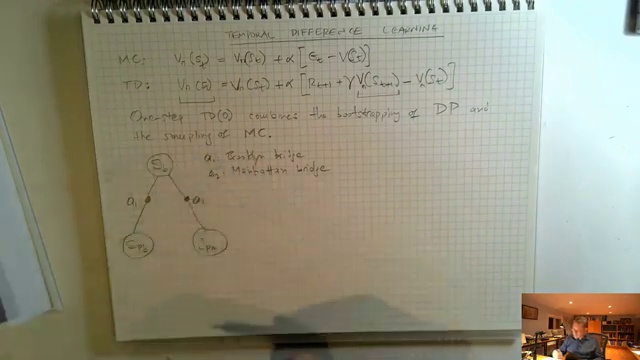 TEMPORAL DIFFERENCE LEARNING
MC: Vπ(St) = Vπ(St) + α [Gt − V(St)]
TD: Vπ(St) = Vπ(St) + α [Rt+1 + γVπ(St+1) − Vπ(St)]
One-step TD(0) combines the bootstrapping of DP and
the sampling of MC.
a1: Brooklyn bridge
a2: Manhattan bridge
a1 a2